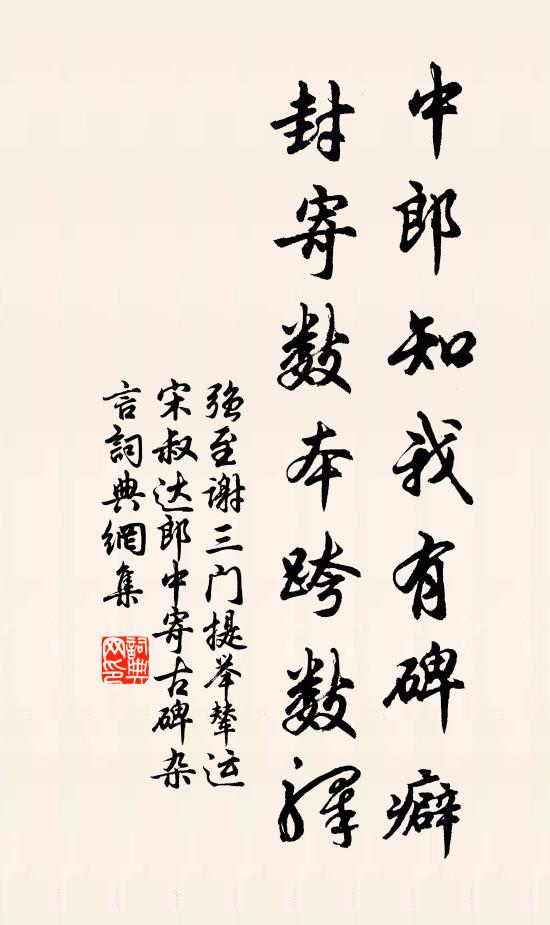 中郎知我有碑癖
封寄数本跨数驿
强至谢三门提举辇运
宋叔达郎中寄古碑杂
言詞典網集
詞典网印